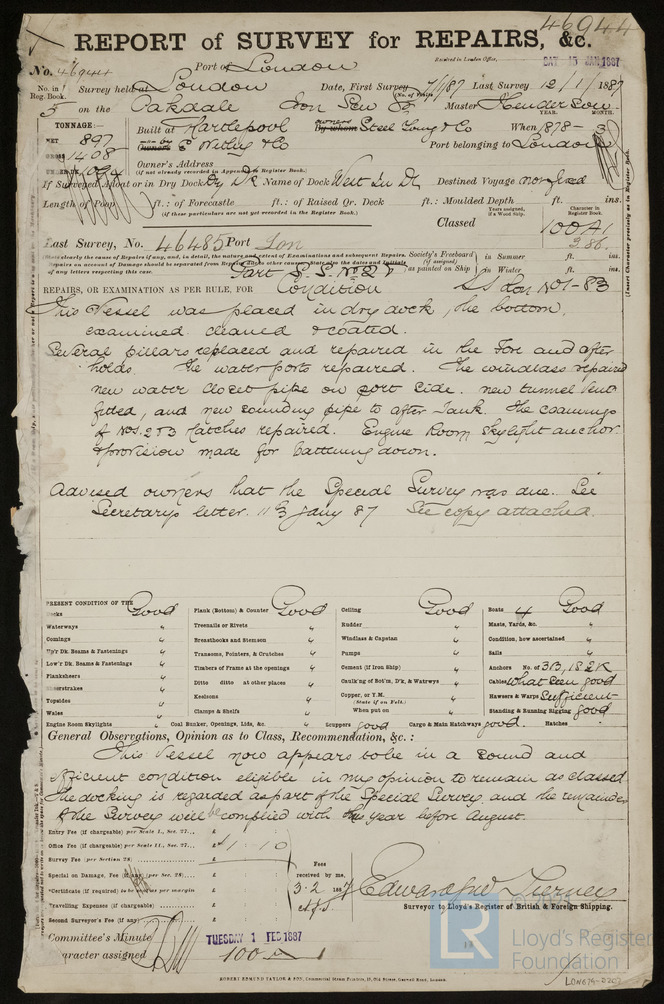 46944
REPORT of SURVEY for REPAIRS, &c.
No. 46944 Port of London Received in London Office, SAT. 15 JAN 1887
No. in Reg. Book. Survey held at London Date, First Survey 7/1/87 Last Survey 12/1/1887
(No. of Visits)
5 on the Oakdale Iron Scw Master Henderson
TONNAGE: YEAR. MONTH.
NET 897 Built at Hartlepool By whom owners Steel Young & Co When 1878 - 3
GROSS 1408 Owners by E Withy & Co Port belonging to London
Owner's Address
(if not already recorded in Appendix to Register Book.)
If Surveyed Afloat or in Dry Dock Dry Dk Name of Dock West In Dk Destined Voyage not fixed
Length of Poop ft.: of Forecastle ft.: of Raised Qr. Deck ft.: Moulded Depth ft. ins.
(if these particulars are not yet recorded in the Register Book.) Years assigned, if a Wood Ship. Character in Register Book.
Classed 100A1
2.86.
Last Survey, No. 46485 Port Lon
(State clearly the cause of Repairs if any, and, in detail, the nature and extent of Examinations and subsequent Repairs. Society's Freeboard in Summer ft. ins.
(if assigned)
as painted on Ship in Winter ft. ins.
of any letters respecting this case. Part S.S. No 2
REPAIRS, OR EXAMINATION AS PER RULE, FOR Condition SS Lon No1-83
This Vessel was placed in dry dock, the bottom
examined cleaned & coated.
Several pillars replaced and repaired in the Fore and after
holds. The water ports repaired. The windlass repaired
new water closet pipe on port side. new tunnel vent
fitted, and new sounding pipe to after Tank. The coamings
of Nos. 2 & 3 Hatches repaired. Engine Room Skylight anchor.
& provision made for battening down.
Advised owners that the Special Survey was due. See
Secretarys letter. 11th Jany 87 See copy attached.
PRESENT CONDITION OF THE
Decks Good Plank (Bottom) & Counter Good Ceiling Good Boats 4 Good
Waterways " Treenails or Rivets " Rudder " Masts, Yards, &c. "
Comings " Breasthooks and Stemson " Windlass & Capstan " Condition, how ascertained "
Up'r Dk. Beams & Fastenings " Transoms, Pointers, & Crutches " Pumps " Sails "
Low'r Dk. Beams & Fastenings " Timbers of Frame at the openings " Cement (if Iron Ship) " Anchors No. of 3B, 1S, 2K
Planksheers " Ditto ditto at other places " Caulk'ng of Bot'm, D'k, & Watrwys " Cables What seen good
Sheerstrakes " Keelsons " Copper, or Y.M. " Hawsers & Warps Sufficient
(State if on Felt.)
Topsides " Clamps & Shelfs " When put on " Standing & Running Rigging good
Wales "
Engine Room Skylights " Coal Bunker, Openings, Lids, &c. " Scuppers good Cargo & Main Hatchways good. Hatches "
General Observations, Opinion as to Class, Recommendation, &c. :
This Vessel now appears to be in a sound and
efficient condition eligible in my opinion to remain as classed
The docking is regarded as part of the Special Survey and the remainder
of the Survey will be complied with this year before August.
Entry Fee (if chargeable) per Scale I., Sec. 27... £
Office Fee (if chargeable) per Scale II., Sec. 27... £ 1 : 10
Survey Fee (per Section 28) £
Special or Damage Fee (if any) (per Sec. 28) £
Certificate (if required) to be sent as per margin
Travelling Expenses (if chargeable) £
Second Surveyor's Fee (if any) £
Fees received by me, 3.2 1887
Edward Jno Tierney
Surveyor to Lloyd's Register of British & Foreign Shipping.
Committee's Minute TUESDAY 1 FEB 1887
Character assigned 100 A 1
ROBERT EDMUND TAYLOR & SON, Commercial Steam Printers, 19, Old Street, Goswell Road, London.
LR
Lloyd's Register
Foundation